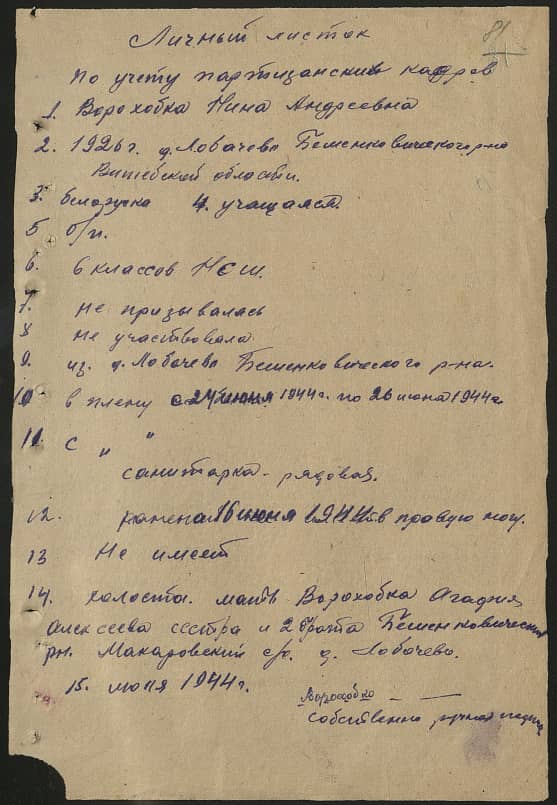 81
Личный листок
по учету партизанских кадров
1. Ворохобка Нина Андреевна
2. 1926 г. д. Лобачево Бешенковического р-на
Витебской области.
3. белоруска 4. учащаяся.
5 б/п.
6. 6 классов НСШ.
7. не призывалась
8 не участвовала
9. из д. Лобачево Бешенковического р-на.
10 в плену с 24 июня 1944 г. по 26 июня 1944 г.
11. с " "
санитарка - рядовая.
12. ранена 16 июня 1944 в правую ногу.
13 Не имеет
14. холоста. мать Ворохобка Агафия
Алексеева сестра и 2 брата Бешенковический
рн. Макаровский с/с. д. Лобачево.
15. июля 1944 г.
Ворохобко
собственно ручная